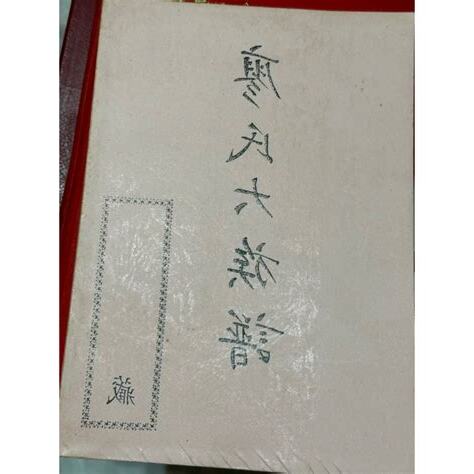 廖氏大族譜
藏